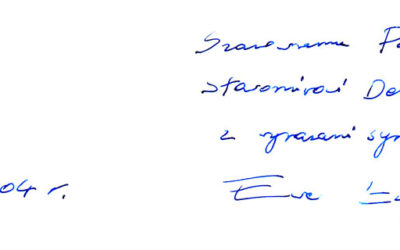 Szanownemu Pa
Sławomirowi Do
z wyrazami sym
04 r. Ewa